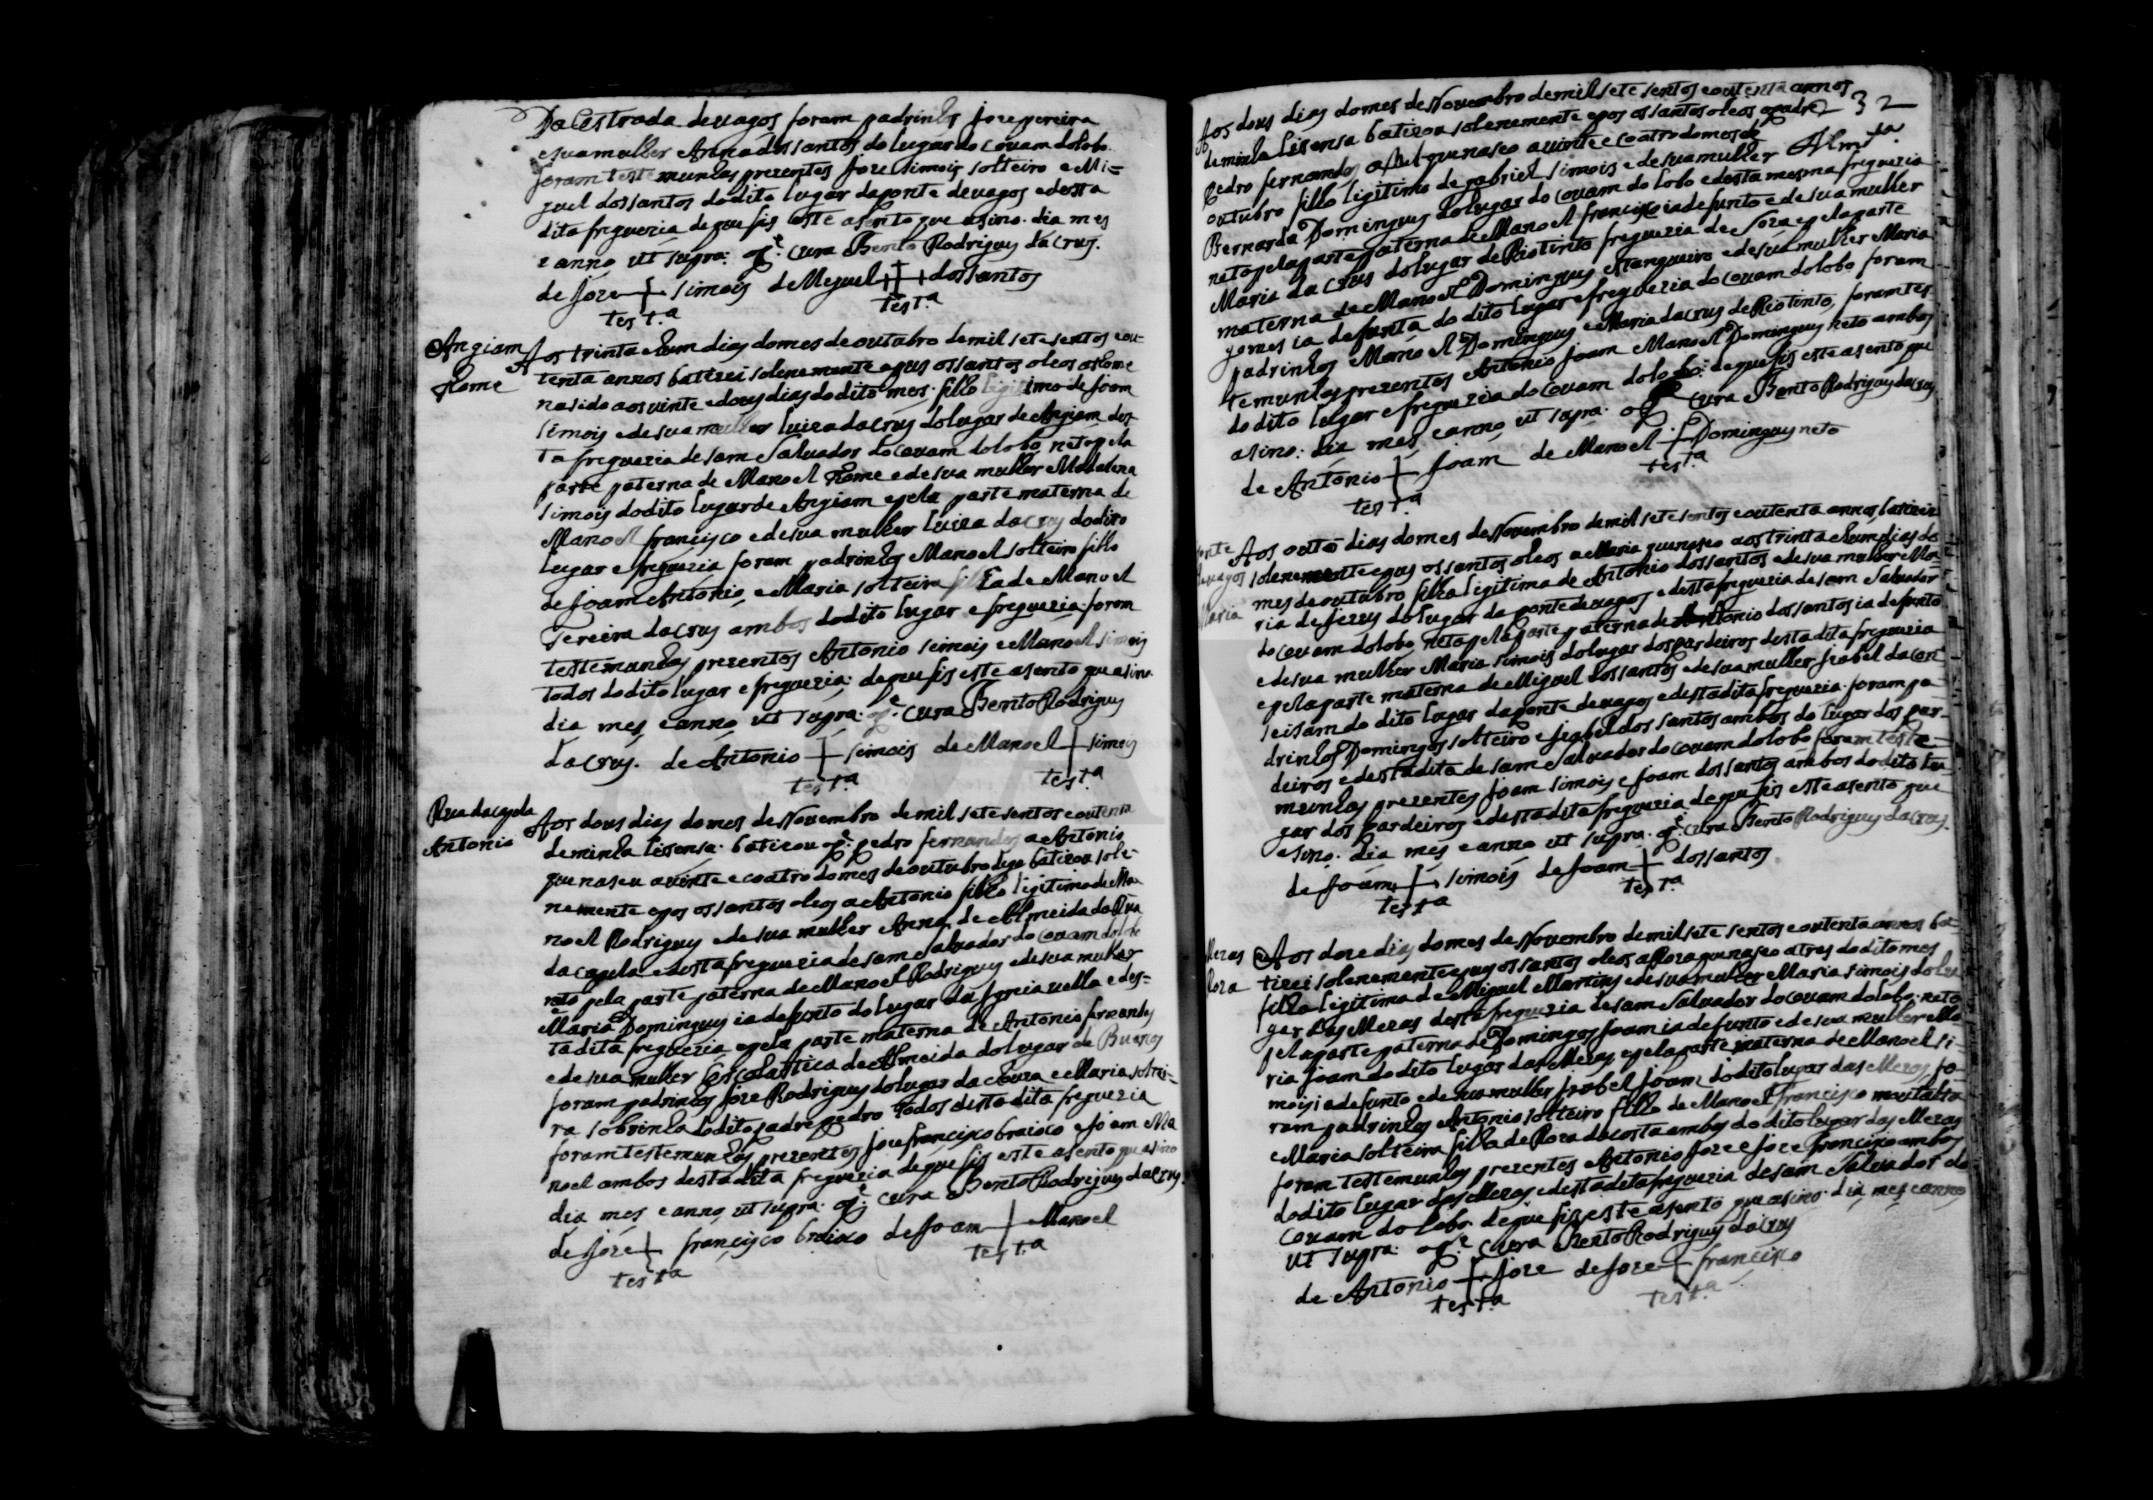 Da Estrada devagos foram padrinhos Joze pereira
esuamulher Anna dos santos do lugar do covam dolobo.
foram testemunhas prezentes Joze simois solteiro e Mi=
guel dos santos do dito lugar daponte devagos edesta
dita freguezia deque fis este asento que asino. dia mes
e anno ut supra: o P.e cura Bento Rodrigues da crus.
de Joze + simois de Meguel + dos santos
test.a test.a
Angiam
Thome
Aos trinta ehum dias domes de outubro demil setesentos eou-
tenta annos batizei solenemente epus os santos oleos aThome
nasido aos vinte edous dias do dito mes. filho legitimo de Joam
simois edesua mulher luiza da crus do lugar de Angiam des-
ta freguezia de sam Salvador do covam dolobo neto pela
parte paterna de Manoel Thome e de sua mulher Madalena
simois dodito lugar de Angiam epela parte materna de
Manoel francisco edesua mulher luiza da crus dodito
lugar e freguezia foram padrinhos Manoel solteiro filho
de Joam Antonio, e Maria solteira filha de Manoel
Pereira da crus ambos dodito lugar e freguezia. foram
testemunhas prezentes Antonio simois e Manoel simois
todos dodito lugar e freguezia: deque fis este asento que asino
dia mes eanno ut supra: o P.e cura Bento Rodrigues
da crus. de Antonio + simois de Manoel + simois
test.a test.a
Rua dacapela
Antonio
Aos dous dias domes de Novembro demil setesentos eoutenta
deminha lisensa. batizou o P.e pedro fernandes a Antonio
que naseu avinte ecoatro domes deoutubro digo batizou sole-
nemente epos os santos oleos a Antonio filho legitimo de Ma-
noel Rodrigues edesua mulher Anna de Almeida da Rua
da capela edesta freguezia desam Salvador do covam dolobo
neto pela parte paterna de Manoel Rodrigues edesuamulher
Maria Domingues ia defunto do lugar da e des=
ta dita freguezia epela parte materna de Antonio fernandes
edesuamulher Escolastica de Almeida do lugar de
foram padrinhos Joze Rodrigues do lugar da e Maria soltei=
ra sobrinha dodito padre pedro todos desta dita freguezia
foram testemunhas prezentes Joze francisco braisco e Joam Ma
noel ambos desta dita freguezia deque fis este asento que asino
dia mes eanno ut supra: o P.e cura Bento Rodrigues da crus.
de Joze + francisco braisco de Joam + Manoel
test.a test.a
232
Aos dous dias domes deNovembro demil setesentos eoutenta annos
deminha lisensa batizou solenemente epos os santos oleos opadre
Pedro fernandes que naseo avinte ecoatro domes de
outubro filho legitimo de gabriel simois e desuamulher
Bernarda Domingues dolugar do covam do lobo edesta mesma freguezia
neto pela parte paterna de Manoel francisco iadefunto edesuamulher
Maria da crus dolugar de Riotinto freguezia de Soza epela parte
materna de Manoel Domingues edesuamulher Maria
gomes ia defunta do dito lugar efreguezia do covam dolobo foram
padrinhos Manoel Domingues e Maria dacrus de Riotinto, foram tes
temunhas prezentes Antonio Joam Manoel Domingues neto ambos
do dito lugar e freguezia do covam dolobo: deque fis este asento que
asino: dia mes eanno ut supra. o P.e cura Bento Rodrigues dacrus
de Antonio + Joam de Manoel + Domingues neto
test.a test.a
Maria
Aos outo dias domes de Novembro demil setesentos eoutenta annos batizei
solenemente epus os santos oleos a Maria que naseo aos trinta ehum dias do
mes deoutubro filha legitima de Antonio dos santos edesua mulher Ma-
ria de Jezus do lugar da ponte devagos edesta freguezia de sam Salvador
do covam dolobo, neta pela parte paterna de Antonio dos santos ia defunto
edesua mulher Maria simois do lugar dos pardeiros desta dita freguezia
epela parte materna de Miguel dos santos edesuamulher Jzabel da con
seisam do dito lugar da ponte devagos edesta dita freguezia. foram pa-
drinhos Domingos solteiro e Jzabel dos santos ambos do lugar dos par-
deiros edesta dita de sam Salvador do covam dolobo foram teste-
munhas prezentes Joam simois e Joam dos santos ambos dodito lu-
gar dos pardeiros edesta dita freguezia deque fis este asento que
asino. dia mes eanno ut supra. o P.e cura Bento Rodrigues da crus.
de Joam + simois de Joam + dos santos
test.a test.a
Mezas
Roza
Aos doze dias domes de Novembro demil sete sentos eoutenta annos ba
tizei solenemente epus os santos oleos aRoza que naseo atres dodito mes
filha legitima de Miguel Martins edesuamulher Maria simois dolu
gar das Mezas desta freguezia desam Salvador do covam dolobo. neta
pela parte paterna de Domingos Joam ia defunto edesua mulher Ma
ria Joam do dito lugar das Mezas epela parte materna de Manoel si-
mois ia defunto edesuamulher Jzabel Joam do dito lugar das Mezas, fo-
ram padrinhos Antonio solteiro filho de Manoel francisco
e Maria solteira filha de Roza dacosta ambos do dito lugar das Mezas
foram testemunhas prezentes Antonio Joze e Joze francisco ambos
dodito lugar das Mezas edesta dita freguezia desam Salvador do
covam do lobo. deque fis este asento que asino. dia mes eanno
ut supra: o P.e cura Bento Rodrigues da crus
de Antonio + Joze de Joze + francisco
test.a test.a